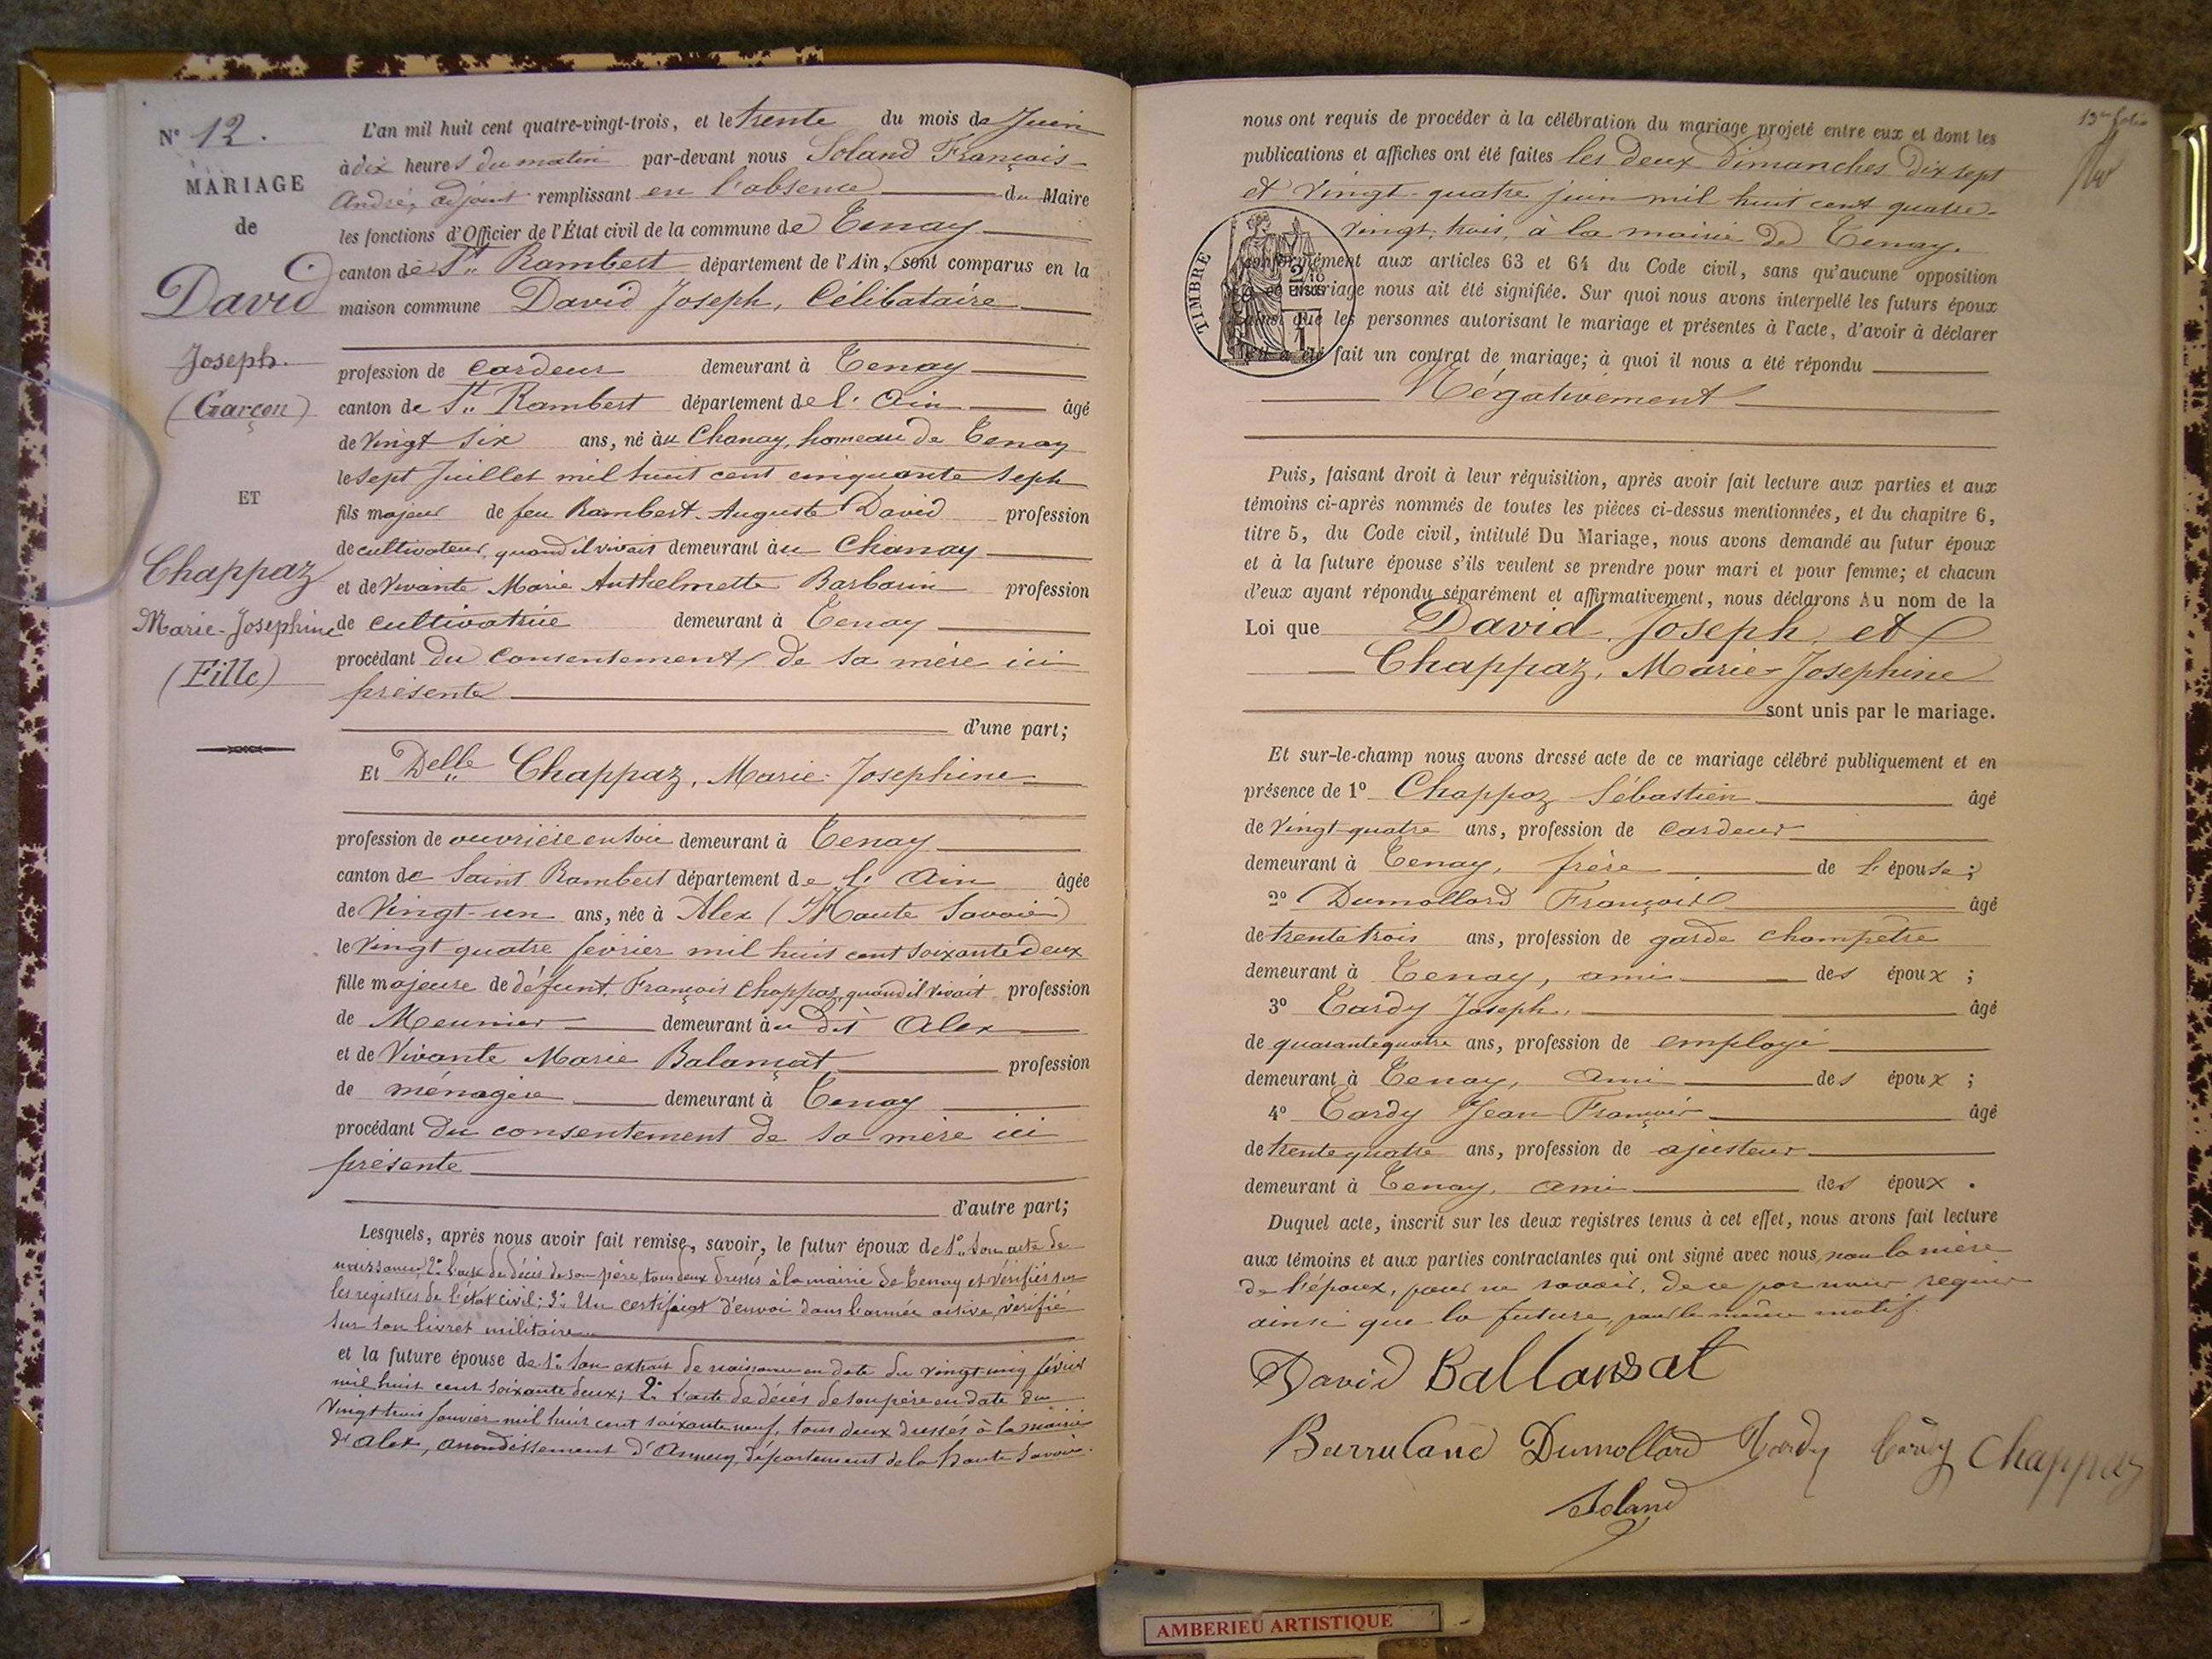 N° 12.
MARIAGE
de
David
Joseph.
(Garçon)
ET
Chappaz
Marie-Josephine
(Fille)
L'an mil huit cent quatre-vingt-trois, et le trente du mois de Juin
à dix heures du matin par-devant nous Soland François-
André, adjoint remplissant en l'absence du Maire
les fonctions d'Officier de l'État civil de la commune de Tenay
canton de St. Rambert département de l'Ain, sont comparus en la
maison commune David Joseph, Célibataire
profession de cardeur demeurant à Tenay
canton de St. Rambert département de l'Ain âgé
de vingt six ans, né au Chanay, hameau de Tenay
le sept Juillet mil huit cent cinquante sept
fils majeur de feu Rambert-Auguste David profession
de cultivateur, quand il vivait demeurant au Chanay
et de vivante Marie Anthelmette Barbarin profession
de cultivatrice demeurant à Tenay
procédant du consentement de sa mère ici
présente
d'une part;
Et Delle Chappaz, Marie-Josephine
profession de ouvrière en soie demeurant à Tenay
canton de Saint Rambert département de l'Ain âgée
de Vingt-un ans, née à Alex (Haute Savoie)
le vingt quatre février mil huit cent soixante deux
fille majeure de défunt François Chappaz, quand il vivait profession
de Meunier demeurant au dit Alex
et de Vivante Marie Balançat profession
de ménagère demeurant à Tenay
procédant du consentement de sa mère ici
présente
d'autre part;
Lesquels, après nous avoir fait remise, savoir, le futur époux de 1° son acte de
naissance, 2° l'acte de décès de son père, tous deux dressés à la mairie de Tenay et vérifiés sur
les registres de l'état civil; 3° Un certificat d'envoi dans l'armée active, vérifié
sur son livret militaire
et la future épouse de 1° son extrait de naissance en date du vingt-cinq février
mil huit cent soixante deux; 2° l'acte de décès de son père en date du
vingt trois janvier mil huit cent soixante neuf, tous deux dressés à la mairie
d'Alex, arrondissement d'Annecy, département de la haute Savoie.
nous ont requis de procéder à la célébration du mariage projeté entre eux et dont les
publications et affiches ont été faites les deux dimanches dix sept
et vingt-quatre juin mil huit cent quatre-
vingt, trois, à la mairie de Tenay.
conformément aux articles 63 et 64 du Code civil, sans qu'aucune opposition
mariage nous ait été signifiée. Sur quoi nous avons interpellé les futurs époux
ainsi que les personnes autorisant le mariage et présentes à l'acte, d'avoir à déclarer
s'il a été fait un contrat de mariage; à quoi il nous a été répondu
Négativement
TIMBRE
Puis, faisant droit à leur réquisition, après avoir fait lecture aux parties et aux
témoins ci-après nommés de toutes les pièces ci-dessus mentionnées, et du chapitre 6,
titre 5, du Code civil, intitulé Du Mariage, nous avons demandé au futur époux
et à la future épouse s'ils veulent se prendre pour mari et pour femme; et chacun
d'eux ayant répondu séparément et affirmativement, nous déclarons Au nom de la
Loi que David Joseph, et
Chappaz, Marie-Josephine
sont unis par le mariage.
Et sur-le-champ nous avons dressé acte de ce mariage célébré publiquement et en
présence de 1° Chappaz Sébastien âgé
de vingt-quatre ans, profession de cardeur
demeurant à Tenay, frère de l'épouse;
2° Dumollard François âgé
de trente trois ans, profession de garde champêtre
demeurant à Tenay, ami des époux;
3° Tardy Joseph, âgé
de quarante quatre ans, profession de employé
demeurant à Tenay, ami des époux;
4° Tardy Jean François âgé
de trente quatre ans, profession de ajusteur
demeurant à Tenay, ami des époux.
Duquel acte, inscrit sur les deux registres tenus à cet effet, nous avons fait lecture
aux témoins et aux parties contractantes qui ont signé avec nous, non la mère
de l'époux, pour ne savoir, de ce par nous requise
ainsi que la future, pour le même motif.
David Ballansat
Dumollard Tardy Tardy Chappaz
Soland
AMBERIEU ARTISTIQUE